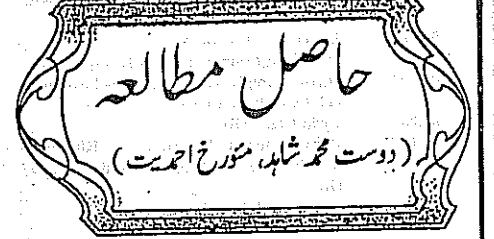 حاصل مطالعہ
(دوست محمد شاہد، مئورخ احمدیت)